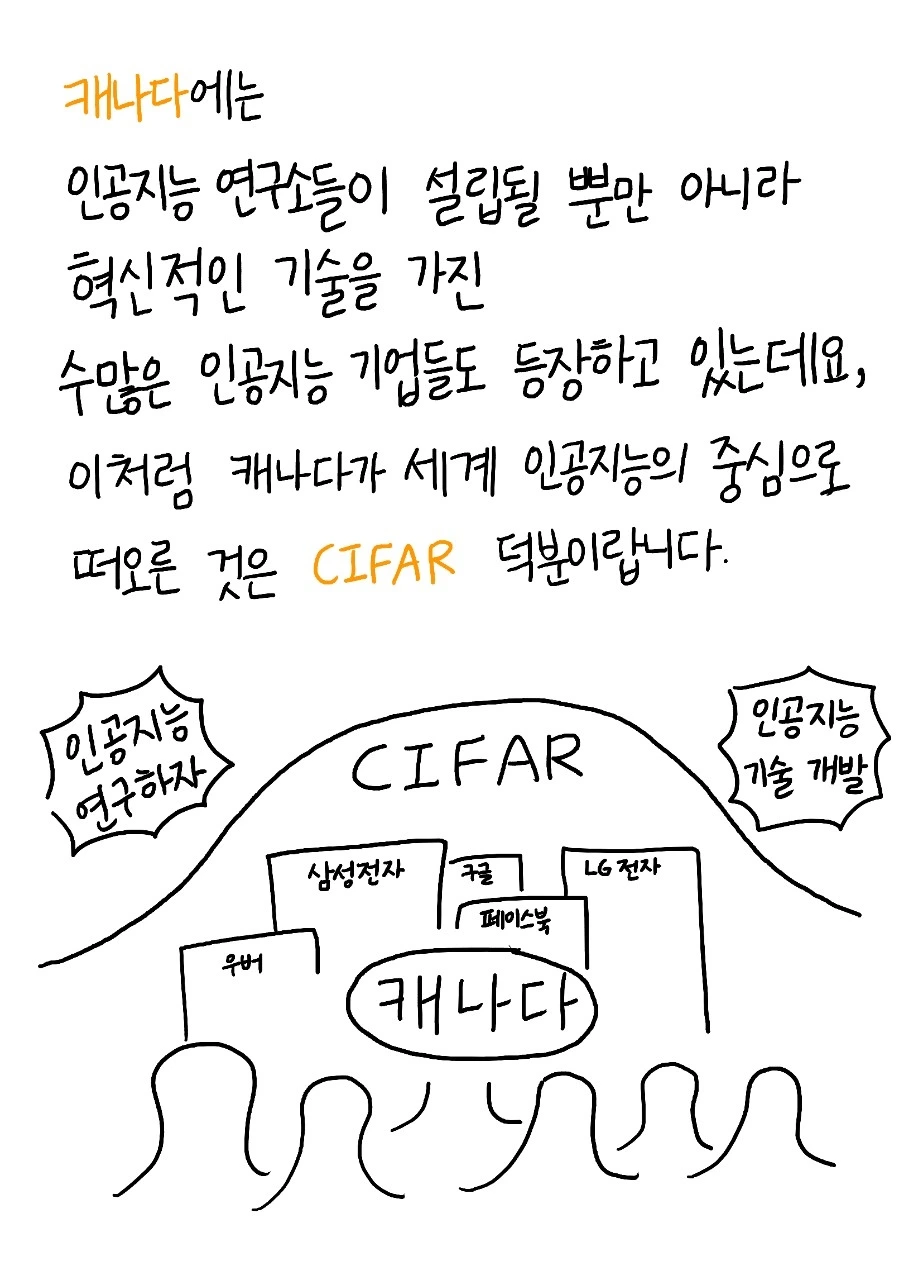 캐나다에는
인공지능 연구소들이 설립될 뿐만 아니라
혁신적인 기술을 가진
수많은 인공지능 기업들도 등장하고 있는데요,
이처럼 캐나다가 세계 인공지능의 중심으로
떠오른 것은 CIFAR 덕분이랍니다.
인공지능
연구하자
CIFAR
인공지능
기술 개발
삼성전자
구글
LG 전자
페이스북
우버
캐나다